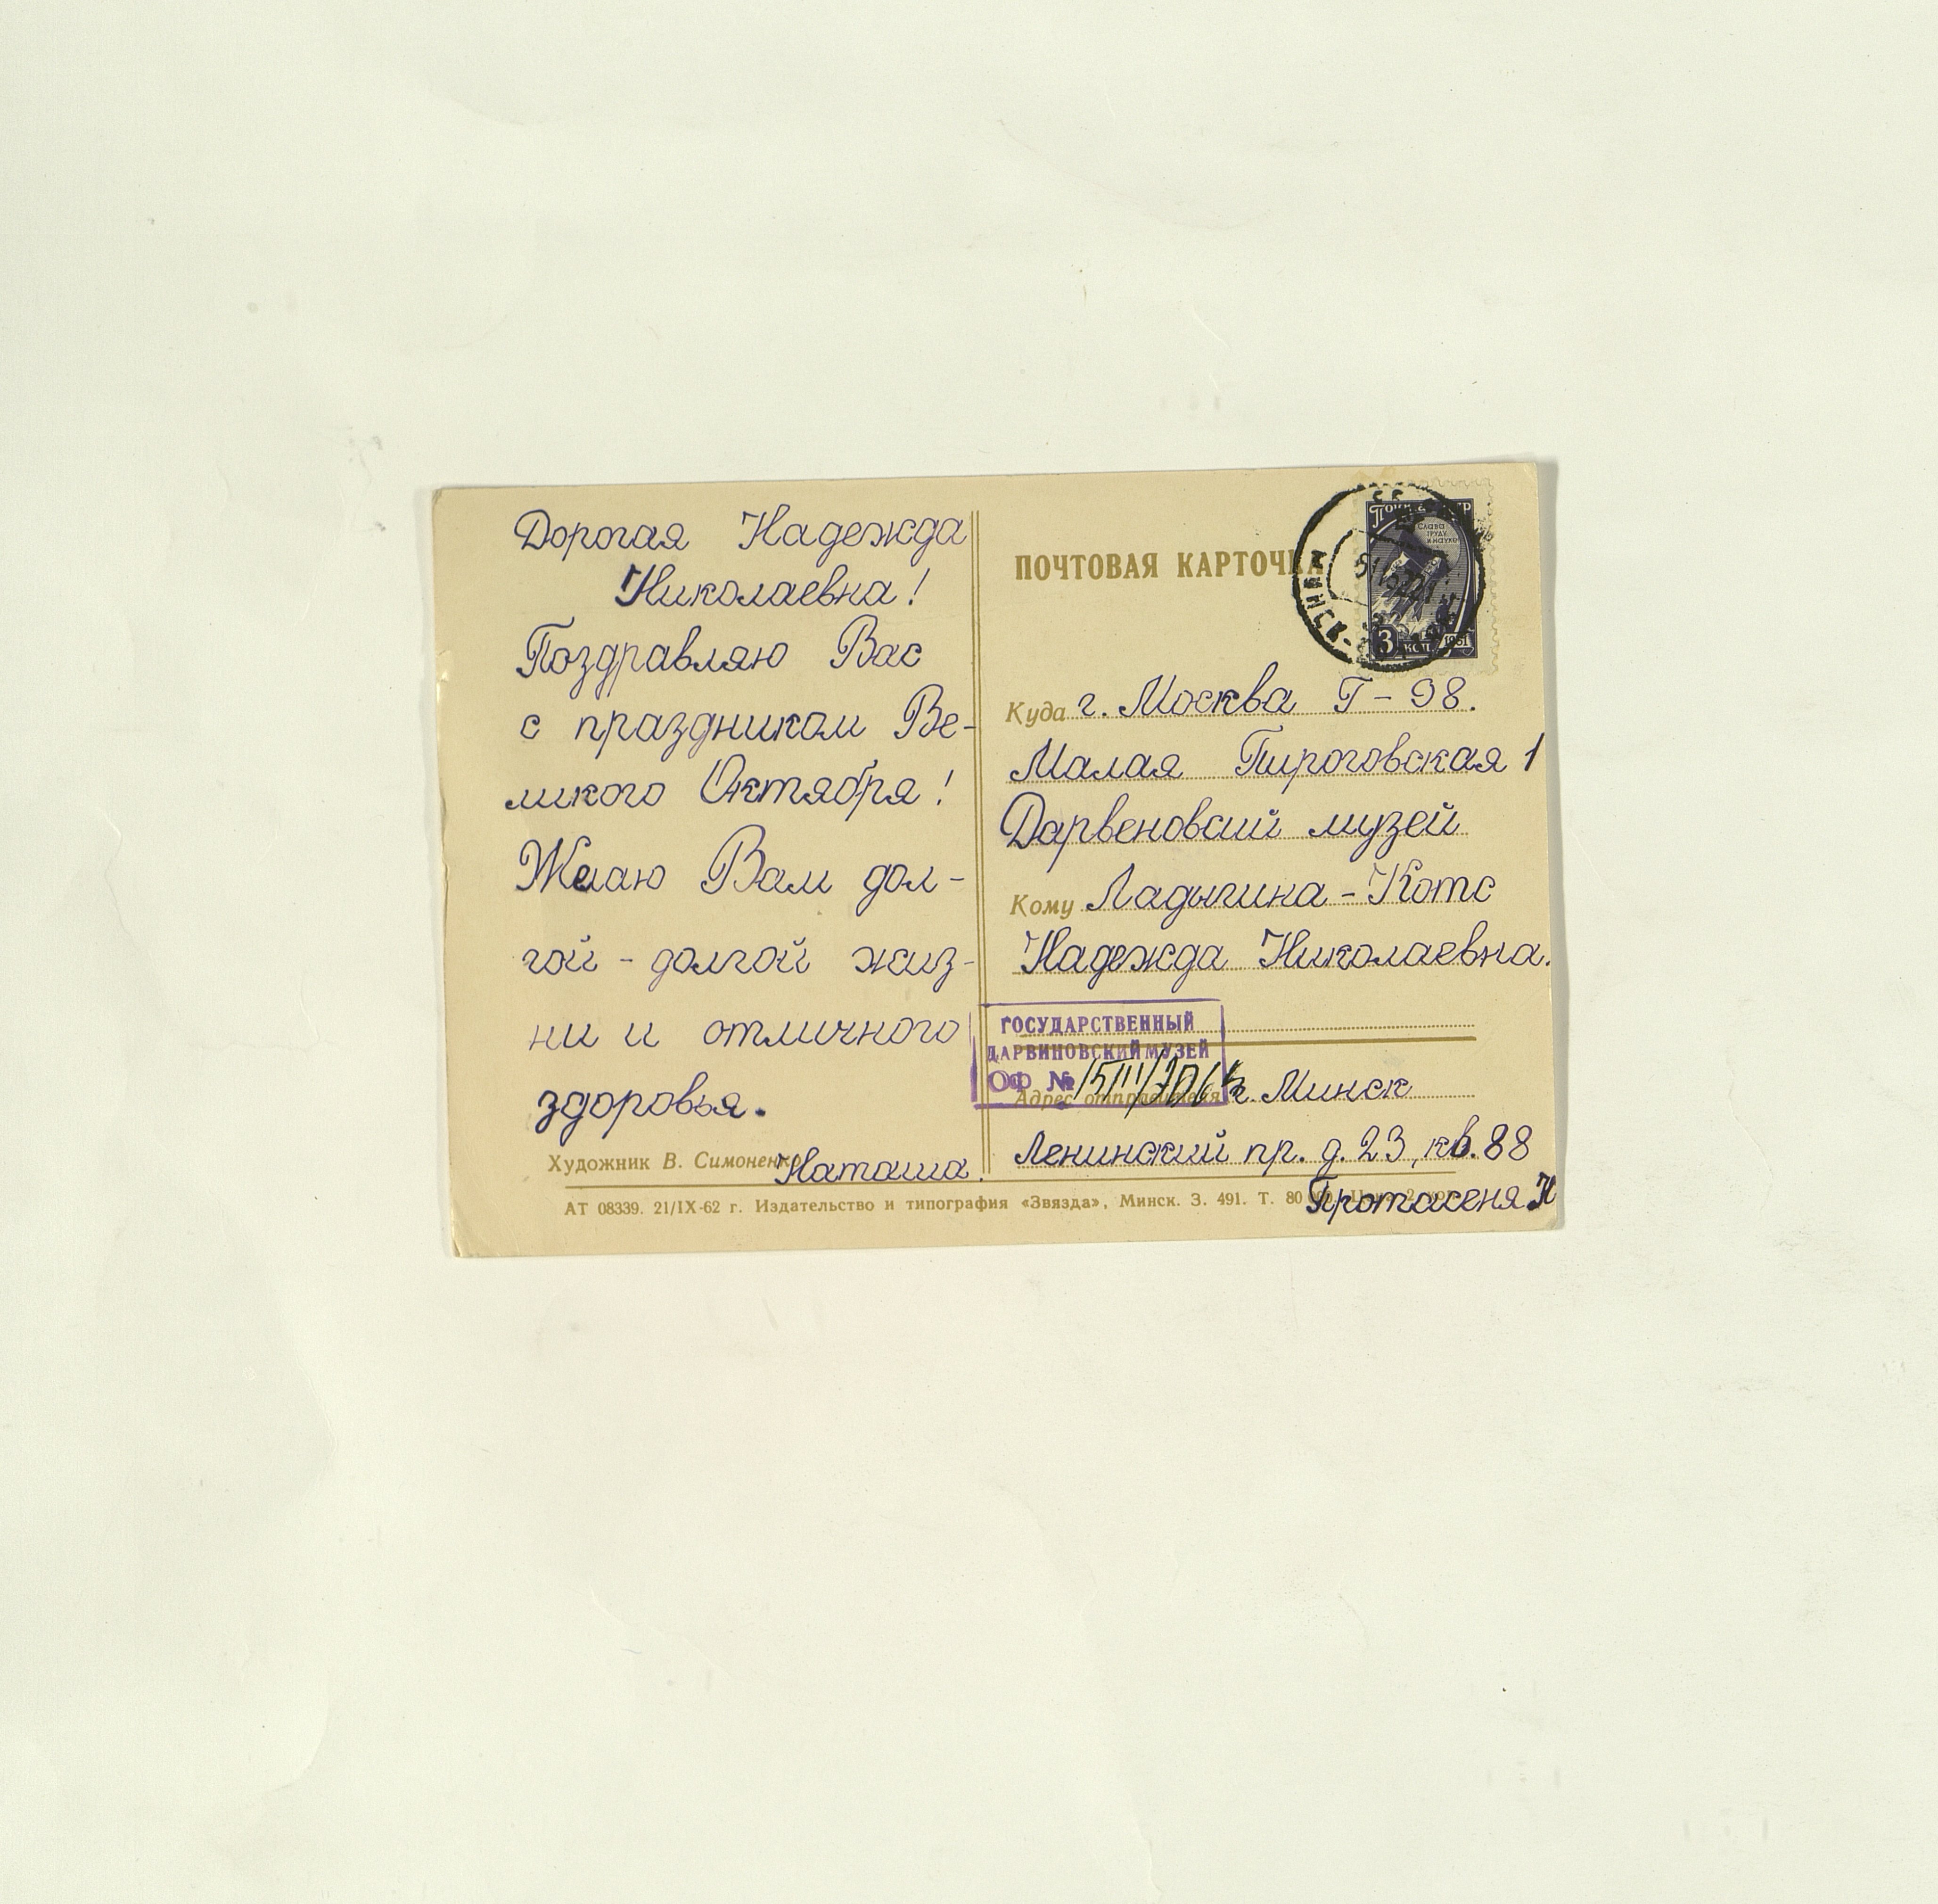 Дорогая Надежда
Николаевна!
Поздравляю Вас
с праздником Ве-
ликого Октября!
Желаю Вам дол-
гой - долгой жиз-
ни и отличного
здоровья.
Наташа.
Художник В. Симоненко
ПОЧТОВАЯ КАРТОЧКА
ПОЧТА СССР
Слава
труду
и науке
3 коп. 1961
МИНСК-
Куда г. Москва Г-98.
Малая Пироговская 1
Дарвеновсий музей
Кому Ладыгина-Котс
Надежда Николаевна.
ГОСУДАРСТВЕННЫЙ
ДАРВИНОВСКИЙ МУЗЕЙ
ОФ №
Адрес отправителя г. Минск
Ленинский пр. д. 23, кв. 88
Протасеня Н
АТ 08339. 21/IX-62 г. Издательство и типография «Звязда», Минск. З. 491. Т. 80